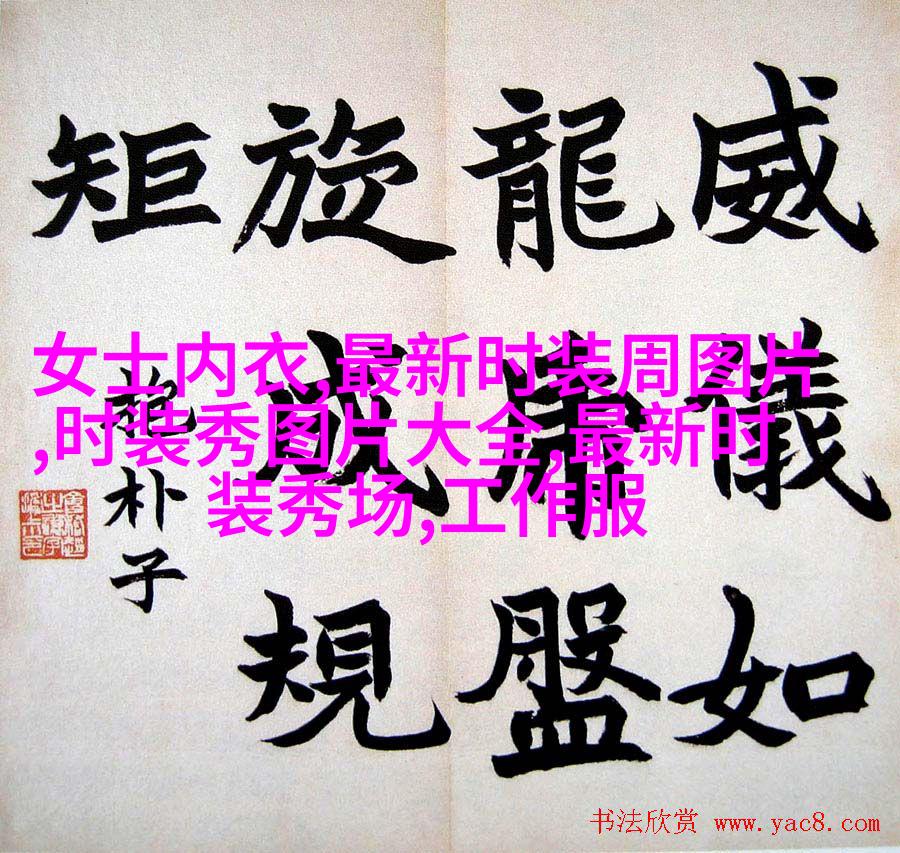 威儀如
龍虎盤
旋成規
矩
抱朴子
女士内衣,最新时装周图片
,时装秀图片大全,最新时
装秀场,工作服
书法欣赏 www.yac8.com